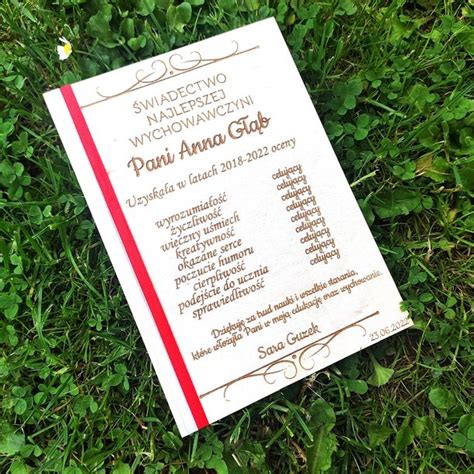 ŚWIADECTWO
NAJLEPSZEJ
WYCHOWAWCZYNI
Pani Anna Głąb
Uzyskała w latach 2018-2022 oceny
wyrozumiałość celujący
życzliwość celujący
wieczny uśmiech celujący
kreatywność celujący
okazane serce celujący
poczucie humoru celujący
cierpliwość celujący
podejście do ucznia celujący
sprawiedliwość
Dziękuję za trud nauki i wszelkie starania,
które włożyła Pani w moją edukację oraz wychowanie.
Sara Guzek
23.06.2022